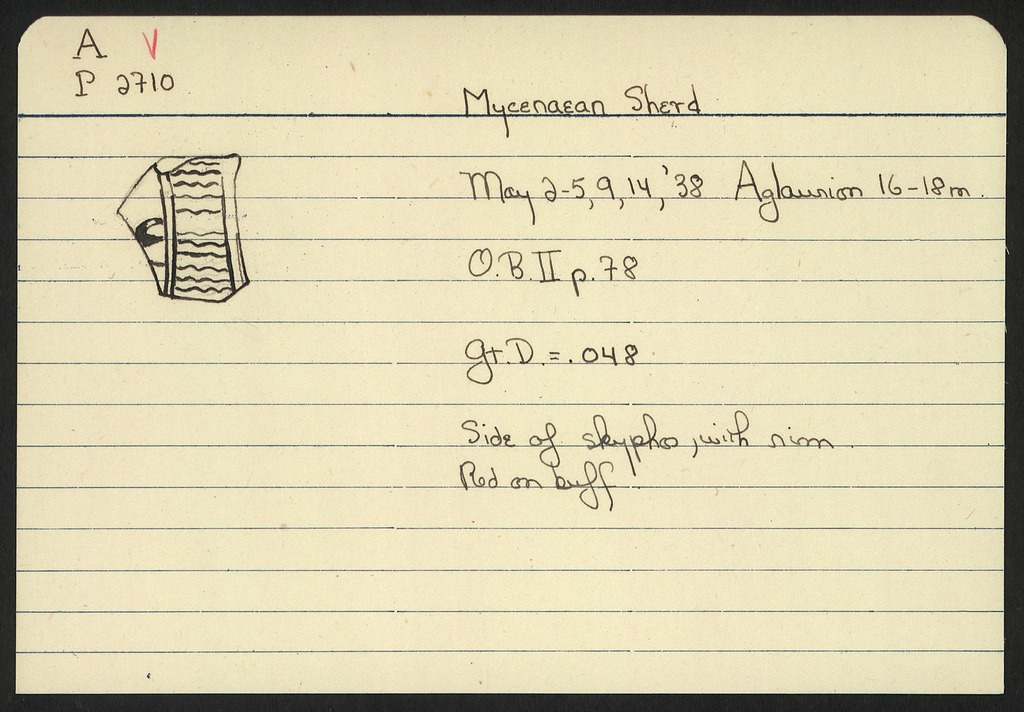 A V
P 2710
Mycenaean Sherd
May 2-5, 9, 14, '38 Aglaurion 16-18m.
O.B. II p. 78
Gt. D. = .048
Side of skyphos, with rim.
Red on buff